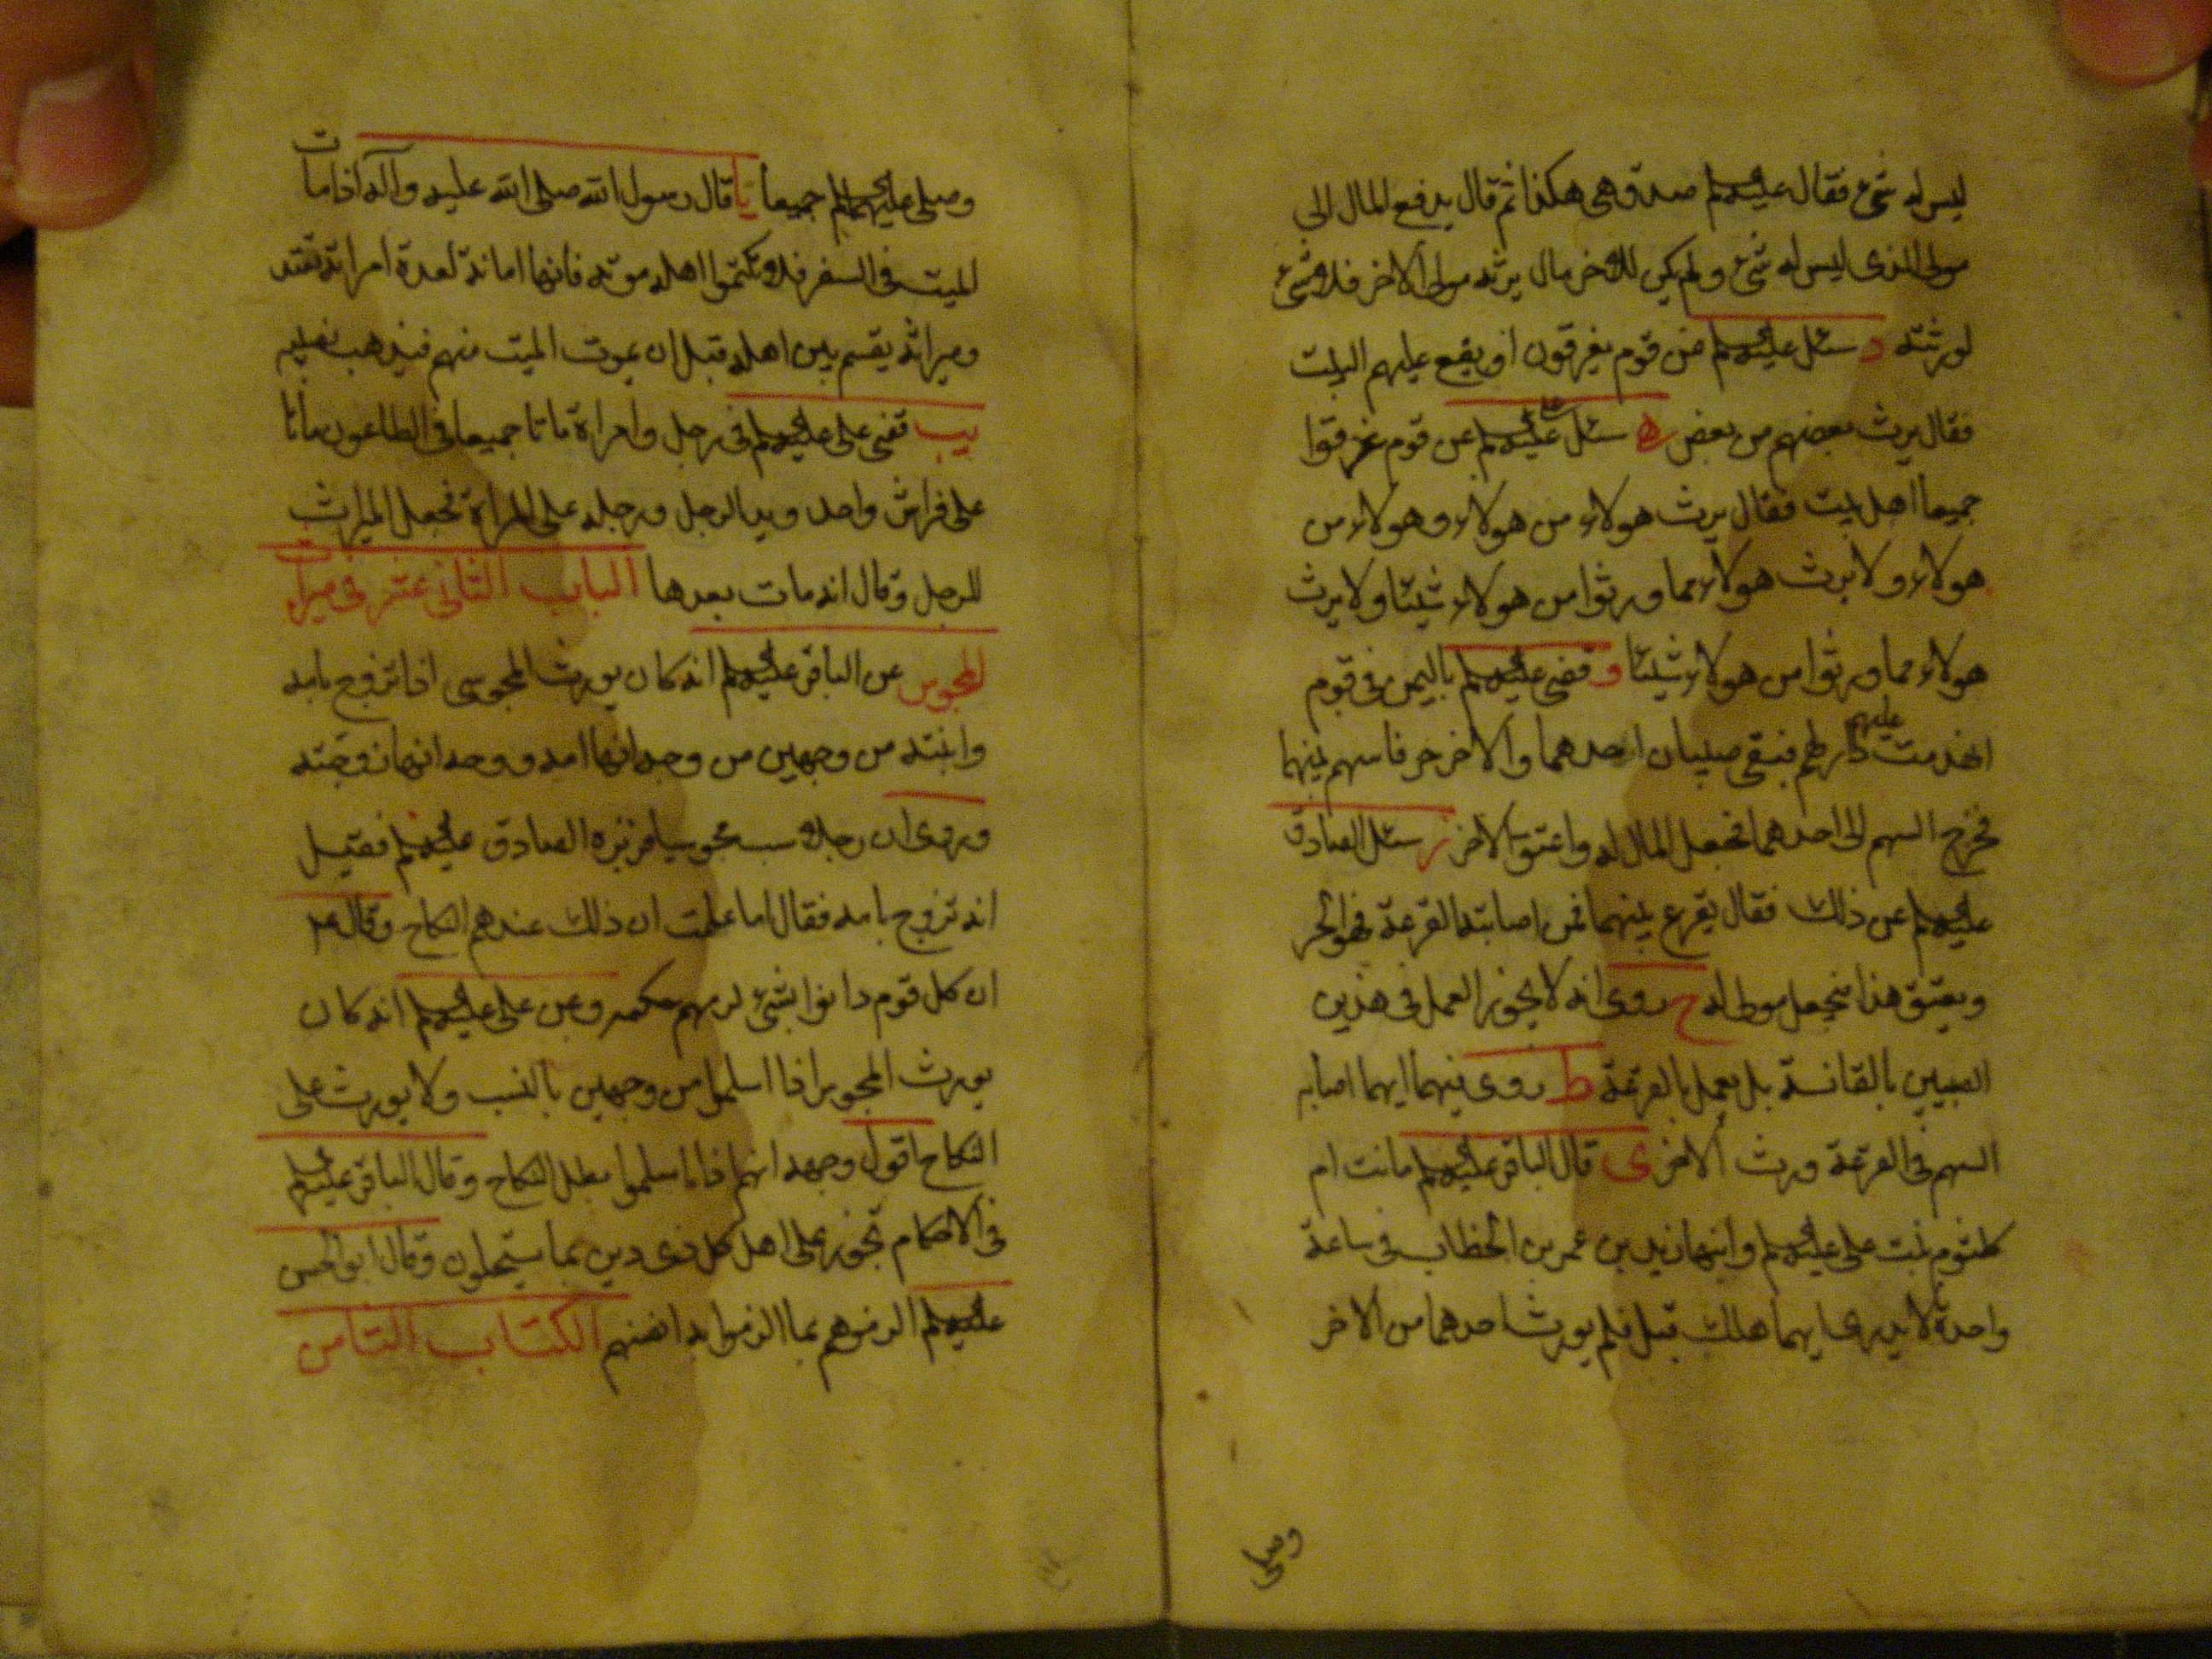 ليس له شيء فقال عليه السلم صدق هي هكذا ثم قال يدفع المال الى
مولى الذى ليس له شيء ولم يكن للاخر مال يرثه مولى الاخر فلا شيء
لورثته د سئل عليه السلم عن قوم يغرقون او يقع عليهم البيت
فقال يرث بعضهم من بعض ه سئل عليه السلم عن قوم غرقوا
جميعا اهل بيت فقال يرث هولاء من هولاء وهولاء من
هولاء ولا يرث هولاء مما ورثوا من هولاء شيئا ولا يرث
هولاء مما ورثوا من هولاء شيئا و قضى عليه السلم باليمن فى قوم
انهدمت عليهم دارهم فبقى صبيان احدهما والاخر حر فاسهم بينهما
فخرج السهم الى احدهما فجعل المال له واعتق الاخر ز سئل الصادق
عليه السلم عن ذلك فقال يقرع بينهما فمن اصابته القرعة فهو الحر
ويعتق هذا فيجعل مولى له ح روى انه لا يجوز العمل فى هذين
الصبيين بل يعمل بالقرعة ط روى بينهما ايهما اصابه
السهم فى القرعة ورث الاخر ى قال الباقر عليه السلم ماتت ام
كلثوم بنت على عليه السلم وابنها زيد بن عمر بن الخطاب فى ساعة
واحدة لا يدرى ايهما هلك قبل فلم يورث احدهما من الاخر
وصلى
وصلى عليهما جميعا يا قال رسول الله صلى الله عليه وآله اذا مات
الميت فى السفر فلا تكتموا اهله موته فانها امانة لعدة امراته تعتد
وميراثه يقسم بين اهله قبل ان يموت الميت منهم فيذهب نصيبه
يب قضى على عليه السلم فى رجل وامراة ماتا جميعا فى الطاعون ماتا
على فراش واحد ويد الرجل ورجله على المراة فجعل الميراث
للرجل وقال انه مات بعدها الباب الثانى عشر فى ميراث
المجوس عن الباقر عليه السلم انه كان يورث المجوسى اذا تزوج بامه
وابنته من وجهين من وجه انها امه ووجه انها زوجته
وروى ان رجلا سب مجوسيا فزبره الصادق عليه السلم فقيل
انه تزوج بامه فقال اما علمت ان ذلك عندهم النكاح وقال ع
ان كل قوم دانوا بشئ لزمهم حكمه وعن على عليه السلم انه كان
يورث المجوس اذا اسلموا من وجهين بالنسب ولا يورث على
النكاح اقول وجهه انهم اذا اسلموا بطل النكاح وقال الباقر عليه السلم
فى الاحكام تجوز على اهل كل ذى دين بما يستحلون وقال ابو الحسن
عليه السلم الزموهم بما الزموا به انفسهم الكتاب الثامن